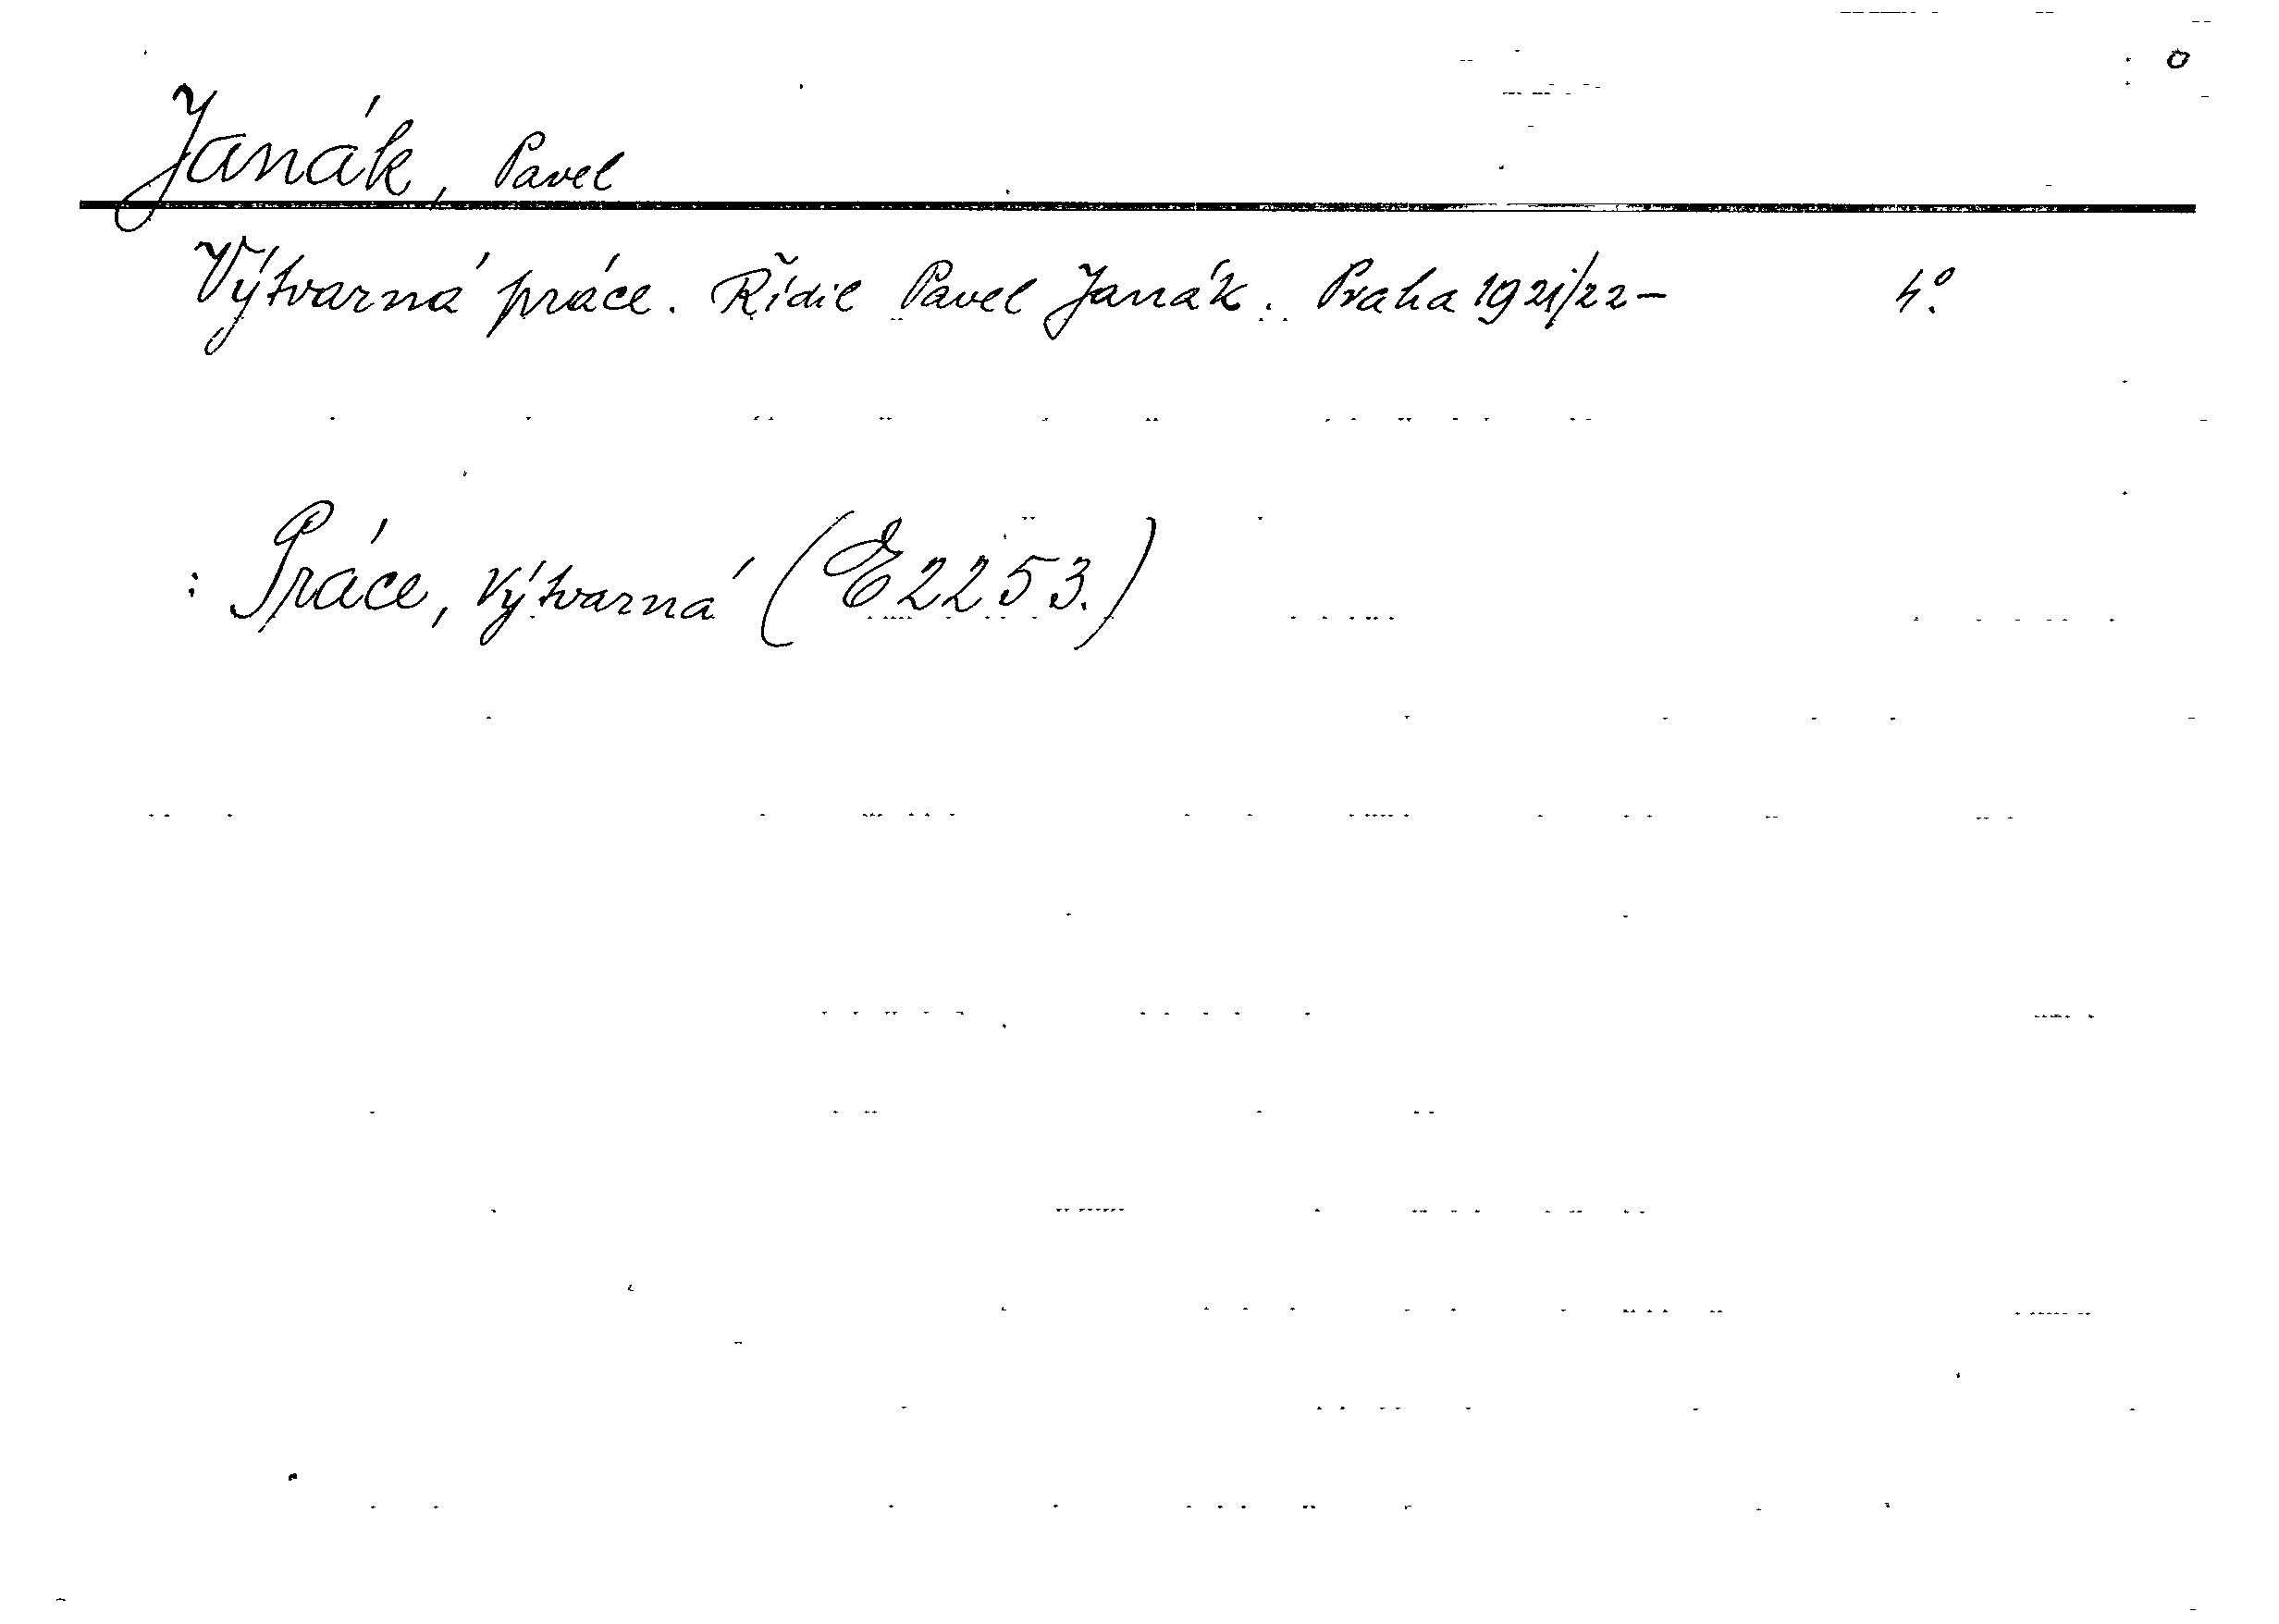 Janák, Pavel
Výtvarná práce. Řídil Pavel Janák. Praha 1921/22- 4°.
: Práce, Výtvarná (E2253.)